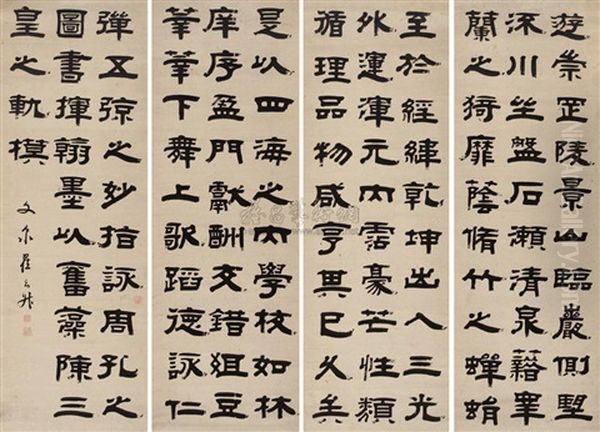 遊崇罡陵景山臨巖側墅
泝川坐盤石瀨清泉藉皋
蘭之猗靡蔭脩竹之蟬蜎
至於經緯乾坤出入三光
外運渾元內霑豪芒性類
循理品物咸亨其已久矣
是以四海之內學校如林
庠序盈門獻酬交錯俎豆
莘莘下舞上歌蹈德詠仁
彈五弦之妙指詠周孔之
圖書揮翰墨以奮藻陳三
皇之軌模